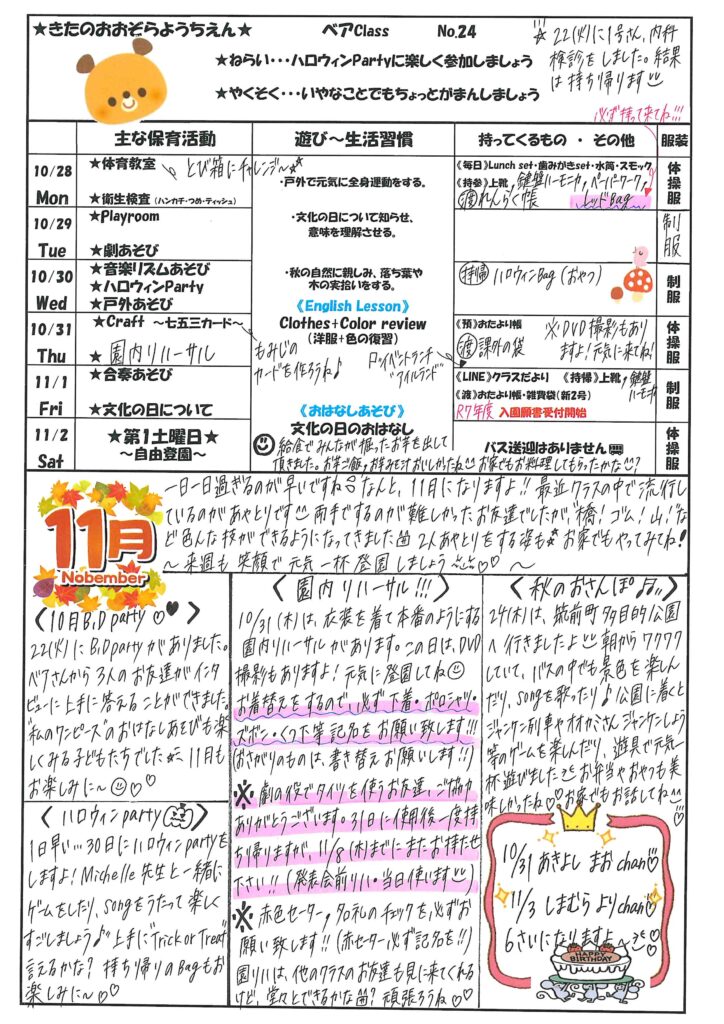 ★きたのおおぞらようちえん★
ベアClass
No.24
★ねらい・・・ハロウィンPartyに楽しく参加しましょう
★やくそく・・・いやなことでもちょっとがまんしましょう
22(火)に1号さん、内科
検診をしました。結果
は持ち帰ります
必ず持って来てね!!!
主な保育活動
遊び～生活習慣
持ってくるもの ・ その他
服装
10/28
Mon
★体育教室
とび箱にチャレンジ～
★衛生検査(ハンカチ・つめ・ティッシュ)
・戸外で元気に全身運動をする。
《毎日》Lunch set・歯みがきset・水筒・スモック
《持参》上靴,鍵盤ハーモニカ,ペーパーワーク,
渡 れんらく帳
レッドBag
体操服
10/29
Tue
★Playroom
★劇あそび
・文化の日について知らせ、
意味を理解させる。
制服
10/30
Wed
★音楽リズムあそび
★ハロウィンParty
★戸外あそび
・秋の自然に親しみ、落ち葉や
木の実拾いをする。
持帰 ハロウィンBag(おやつ)
制服
10/31
Thu
★Craft ～七五三カード～
★園内リハーサル
もみじの
カードを作ろうね♪
《English Lesson》
Clothes+Color review
(洋服+色の復習)
《預》おたより帳
渡 課外の袋
※DVD撮影もあり
ますよ!元気に来てね!
体操服
11/1
Fri
★合奏あそび
★文化の日について
《おはなしあそび》
文化の日のおはなし
《LINE》クラスだより 《持帰》上靴,鍵盤
ハーモニカ
《渡》おたより帳・雑賀袋(新2号)
R7年度 入園願書受付開始
制服
11/2
Sat
★第1土曜日★
～自由登園～
給食でみんなが掘ったお芋を出して
頂きました。お芋ご飯,お芋みそ汁おいしかったね お家でもお料理してもらったかな?
バス送迎はありません
体操服
11月
Nobember
一日一日過ぎるのが早いですね なんと、11月になりますよ!!最近クラスの中で流行し
ているのがあやとりです 両手でするのが難しかったお友達でしたが、橋!ゴム!山!など
色んな技ができるようになってきました 2人あやとりをする姿も お家でもやってみてね!
～来週も笑顔で元気一杯登園しましょう～
〈10月B.D party〉
22(火)にB.D partyがありました。
ベアさんから3人のお友達がインタ
ビューに上手に答えることができました。
"私のワンピース"のおはなしあそびも楽
しくみる子どもたちでした 11月も
お楽しみに～
〈ハロウィンparty〉
1日早い…30日にハロウィンpartyを
しますよ!Michelle先生と一緒に
ゲームをしたり、songをうたって楽しく
すごしましょう♪上手に"Trick or Treat"
言えるかな?持ち帰りのBagもお
楽しみに～
〈園内リハーサル!!!〉
10/31(木)は、衣装を着て本番のようにする
園内リハーサルがあります。この日は、DVD
撮影もありますよ!元気に登園してね
お着替えをするので、必ず下着・ポロシャツ・
ズボン・くつ下等記名をお願い致します!!!
(おさがりのものは、書き替えお願いします!!)
※劇の役でタイツを使うお友達、ご協力
ありがとうございます。31日に使用後一度持
ち帰りますが、11/8(木)までにまたお持たせ
下さい!!(発表会前リハ・当日使います)
※赤色セーター,名札のチェックを必ずお
願い致します!!(赤セーター必ず記名を!!)
園リハは、他のクラスのお友達も見に来てくれる
けど、堂々とできるかな?頑張ろうね
〈秋のおさんぽ♪〉
24(木)は、筑前町多目的公園
へ行きましたよ 朝からワクワク
していて、バスの中でも景色を楽しん
だり、songを歌ったり♪公園に着くと
ジャンケン列車やオオカミさんジャンケンしよう
等のゲームを楽しんだり、遊具で元気一
杯遊びました お弁当やおやつも美
味しかったね お家でもお話してね
10/31 あきよし まお chan
11/3 しまむら より chan
6さいになりますよ～
HAPPY
BIRTHDAY